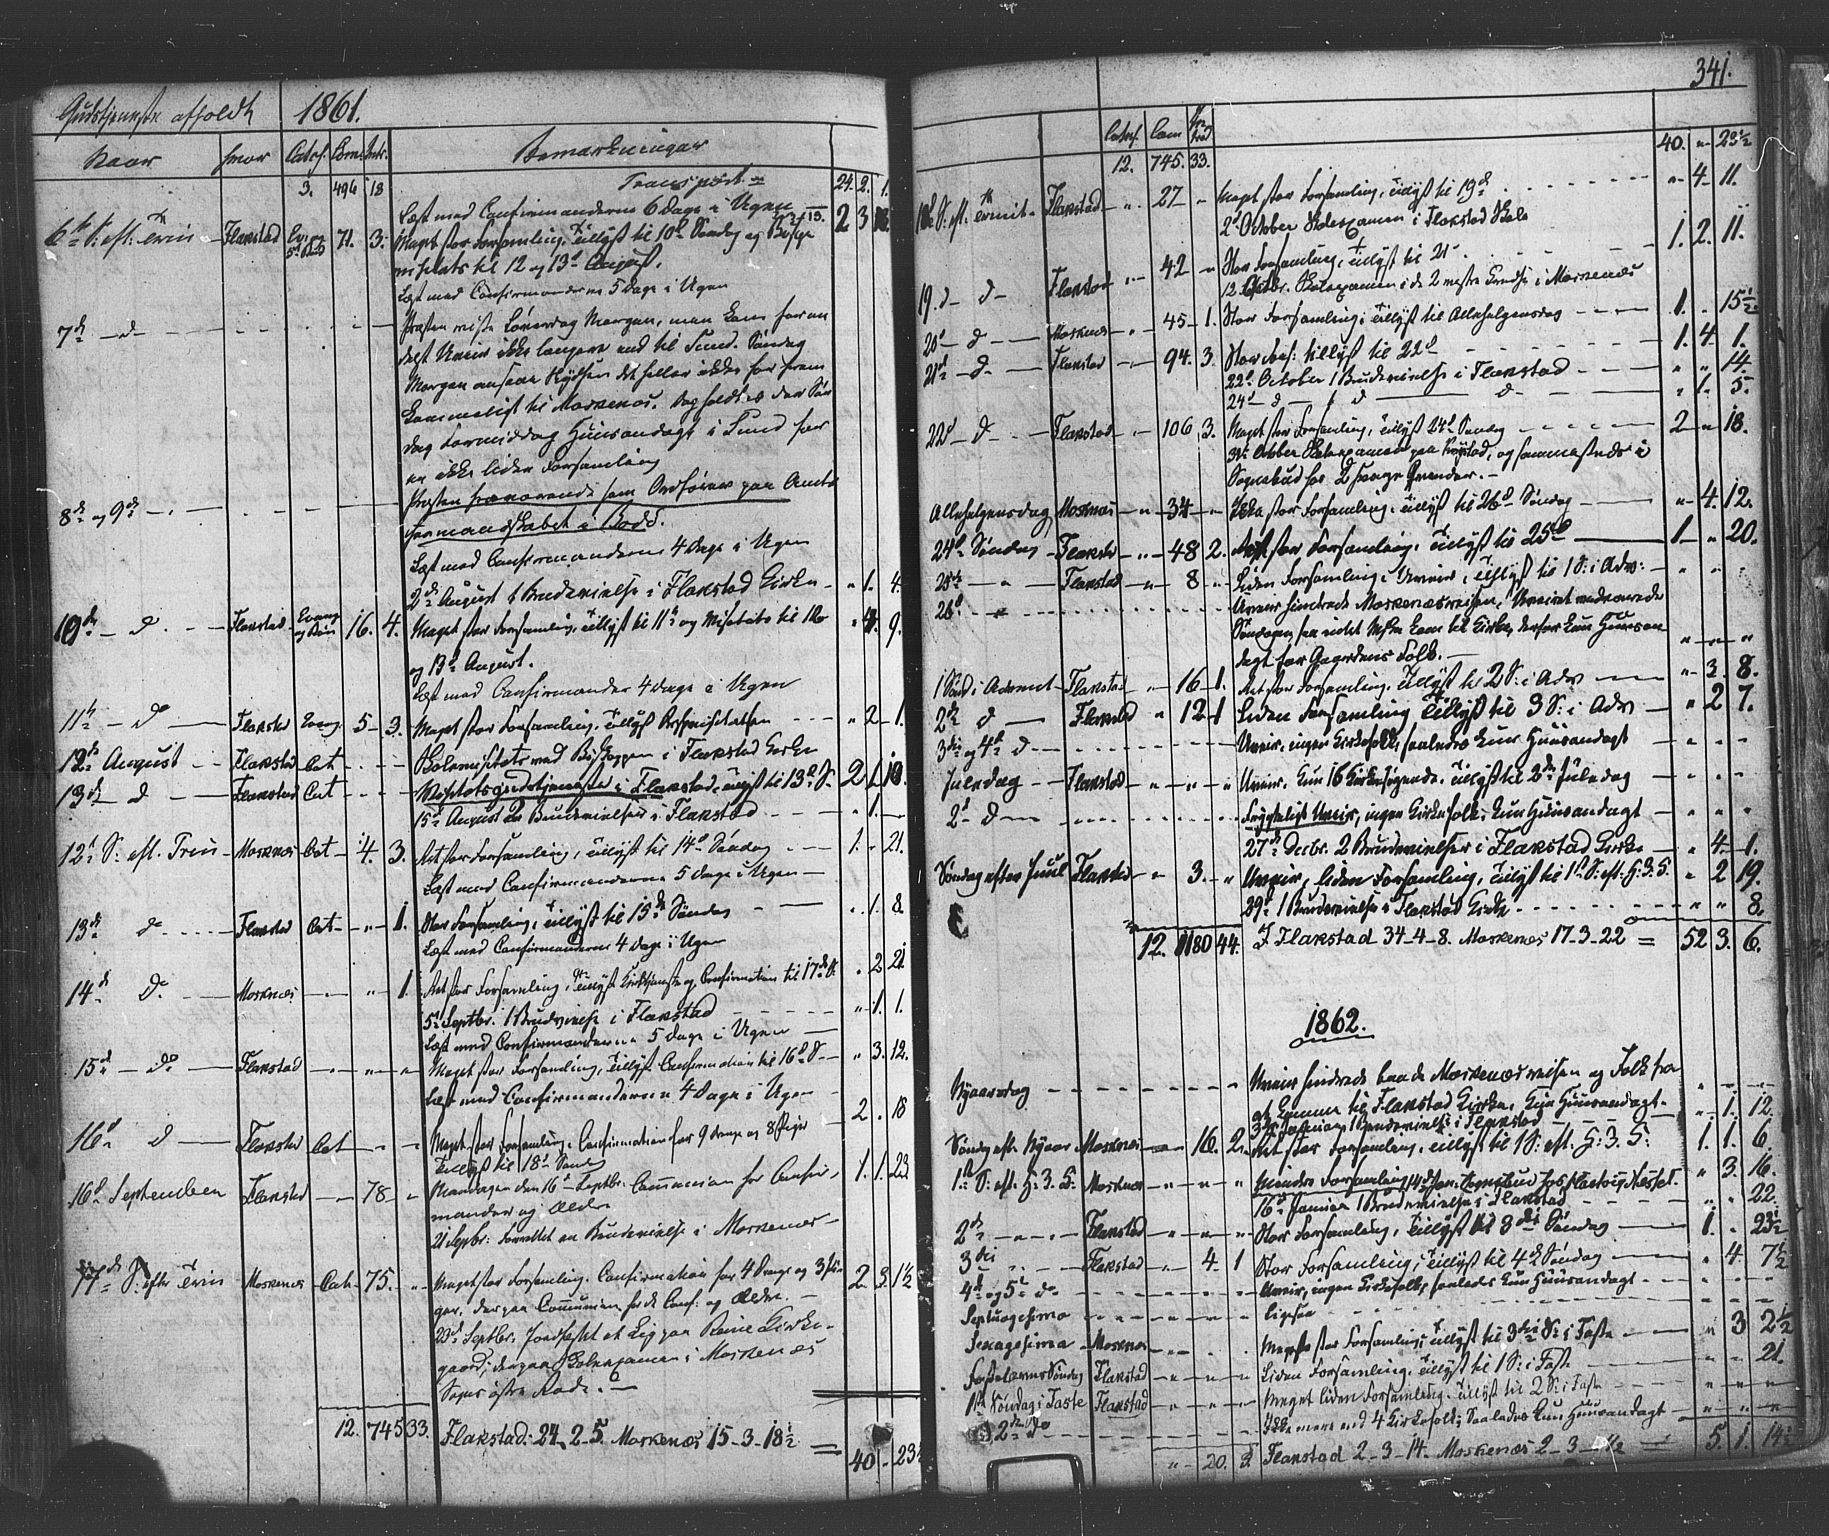 Gudstjeneste afholdt 1861.
Naar hvor Catech. Com. Intr. Bemærkninger
3. 496 18 Transport 24. 2. 1.
Læst med Confirmanderne 6 Dage i Ugen
6te S. eft. Trin Flakstad 71. 3. Meget stor Forsamling, Tillyst til 10de Søndag og Bispe
visitats til 12 og 13de August.
Læst med Confirmanderne 5 Dage i Ugen
7de d Præsten reiste Løverdag Morgen, men kom for on
delst Uveir ikke længere end til Sund. Søndag
Morgen ansaae Skydsen det heller ikke for frem
kommeligt til Moskenæs. Dog holdtes der Søn
dag Formiddag Huusandagt i Sund for
en ikke liden Forsamling
8de og 9de Præsten fraværende som Ordfører paa Amts
formandskabet i Bodø.
Læst med Confirmanderne 4 Dage i Ugen
2den August 1 Brudevielse i Flakstad Kirke " 1. 4.
10de d Flakstad Evang 16. 4. Meget stor Forsamling, Tillyst til 11te og Visitats til 12
og 13de August. 9.
Læst med Confirmander 4 Dage i Ugen
11te do Flakstad Evang 5 3. Meget stor Forsamling, Tillyst " 2 1.
12te August Flakstad Cat Skolevisitats med Biskoppen i Flakstad Kirke
13de d Flakstad Cat Visitatsgudstjeneste i Flakstad, tillyst til 13de S. 2 1 10.
15de August 2 Brudevielser i Flakstad " 1.
12te S. eft. Trin Moskenæs Cat 4. 3. Ret stor Forsamling, Tillyst til 14de Søndag 1. 21.
Læst med Confirmanderne 5 Dage i Ugen
13de do Flakstad Cat " 1. Stor Forsamling, Tillyst til 15de Søndag . 1. 8.
Læst med Confirmanderne 4 Dage i Ugen
14de d. Moskenæs " 1. Ret stor Forsamling, tillyst Kirketjeneste og Confirmation til 17de S. . 2 21
5te Septbr. 1 Brudvielse i Flakstad " 1. 1.
Læst med Confirmanderne 5 Dage i Ugen
15de do Flakstad " " Meget stor Forsamling, Tillyst Confirmation til 16de S. " 3. 12.
Læst med Confirmanderne 4 Dage i Ugen
16de d Flakstad Cat Meget stor Forsamling. Confirmation for 9 Drenge og 8 Piger 2 . 18
Tillyst til 18de Sønd
16de September Flakstad 78 Mandagen den 16de Septbr. Communion for Confir- 1. 1. 23.
mander og Ældre
21 Septbr. Forrettet en Brudevielse i Moskenæs
17de S. efter Trin Moskenæs Cat. 75. Meget stor Forsamling. Confirmation for 4 Drenge og 3 Pi- 2. 3. 1½
ger, derpaa Communion for de Conf. og Ældre.
23de Septbr. Jordfæstet et Lig paa Reine Kirke-
gaard; derpaa Skolexamen i Moskenæs
Sogns østre Rode.
12. 745 33. Flakstad: 24. 2. 5. Moskenæs 15-3-18½ = 40 - 23½
341.
Catech. Com 40. " 23½
12. 745. 33.
18de S. eft. Trinit. Flakstad " 27 " Meget stor Forsamling, tillyst til 19de " 4 11.
2den October Skolexamen i Flakstad Skole
19. d d Flakstad 42 " Stor Forsamling, tillyst til 21de 1. 2. 11.
12 Octbr. Skolexamen i de 2 Kredse i Moskenæs
20de d Moskenæs 45 1. Stor Forsamling, Tillyst til Allehelgensdag 1. . 15½
21de d. Flakstad 94. 3. Stor Fors: tillyst til 22de 1. 4. 1.
22de October 1 Brudevielse i Flakstad " " 14.
24de d 1 d d " 1. 5.
22de d. Flakstad 106 3. Meget stor Forsamling, Tillyst 24de Søndag 2 " 18.
31te October Skolexamen paa , og sammesteds i
Sognebud for 2 svage Qvinder.
Allehelgensdag Moskenæs " 34 Ikke stor Forsamling, Tillyst til 26de Søndag " 4. 12.
24de Søndag Flakstad " 48 2. Ret stor Forsamling, Tillyst til 25de 1 " 20.
25de " Flakstad " 8 " Liden Forsamling, Uveir, tillyst til 1 S. i Adv. " " "
26de " Uveir hindrede Moskenæsreisen, Uveiret vedvarede
Søndagen saa intet Menneske kom til Kirke, derfor kun Huusan
dagt for Gaardens Folk. " " "
1 Sønd i Advent Flakstad " 16 1. Ret stor Forsamling. Tillyst til 2 S. i Adv " 3. 8.
2den d Flakstad " 12 1 Liden Forsamling, Tillyst til 3 S. i Adv " 2 7.
3die og 4de d Uveir, ingen Kirkefolk, saaledes kun Huusandagt " " "
Juledag Flakstad Uveir. Kun 16 Kirkesøgende. Tillyst til 2den Juledag " " "
2de d Frygteligt Uveir, ingen Kirkefolk; Kun Huusandagt " " "
27de Decbr. 2 Brudevielser i Flakstad Kirke " 4 1.
Søndag efter Juul Flakstad " 3. " Uveir, liden Forsamling, Tillyst til 1ste S. eft. H. 3. K. " 2 19.
29de 1 Brudevielse i Flakstad Kirke " " 8.
12. 1180 44. I Flakstad 34-4-8. Moskenæs 17-3-22 = 52 3. 6.
1862.
Nyaarsdag Uveir hindrede baade Moskenæsreisen og Folk fra
at komme til Flakstad Kirke. Kun Huusandagt.
3de Januar 1 Brudevielse i Flakstad " 1. 12.
Søndag eft. Nyaar Moskenæs 16. 2. Ret stor Forsamling, tillyst til 1 S. eft. H. 3. K. 1. 1. 6.
1ste S. eft. H. 3. K. Moskenæs " " " Mindre Forsamling 14de Jan. Sognebud hos " 3. 16.
16de Januar 1 Brudevielse i Flakstad " " 22.
2den Flakstad Stor Forsamling, Tillyst til 3die Søndag 1. . 23½
3die Flakstad 4 1 Stor Forsamling, Tillyst til 4de Søndag " 4. 7½
4de og 5te do Uveir, ingen Kirkefolk, saaledes kun Huusandagt
Septuagesima ligesaa
Sexagesima Moskenæs Meget stor Forsamling, Tillyst til 3die S. i Faste " 3 2½
Fastelavns Søndag Flakstad Liden Forsamling, Tillyst til 1 S. i Faste " " 21.
1ste Søndag i Faste Flakstad Meget liden Forsamling. Tillyst til 2 S. i Faste
2den do Ikke mere end 4 Kirkefolk; Saaledes kun Huusandagt
" 20. 3. Flakstad 2-3-14. Moskenæs 2-3-½ 5. 1. 14½